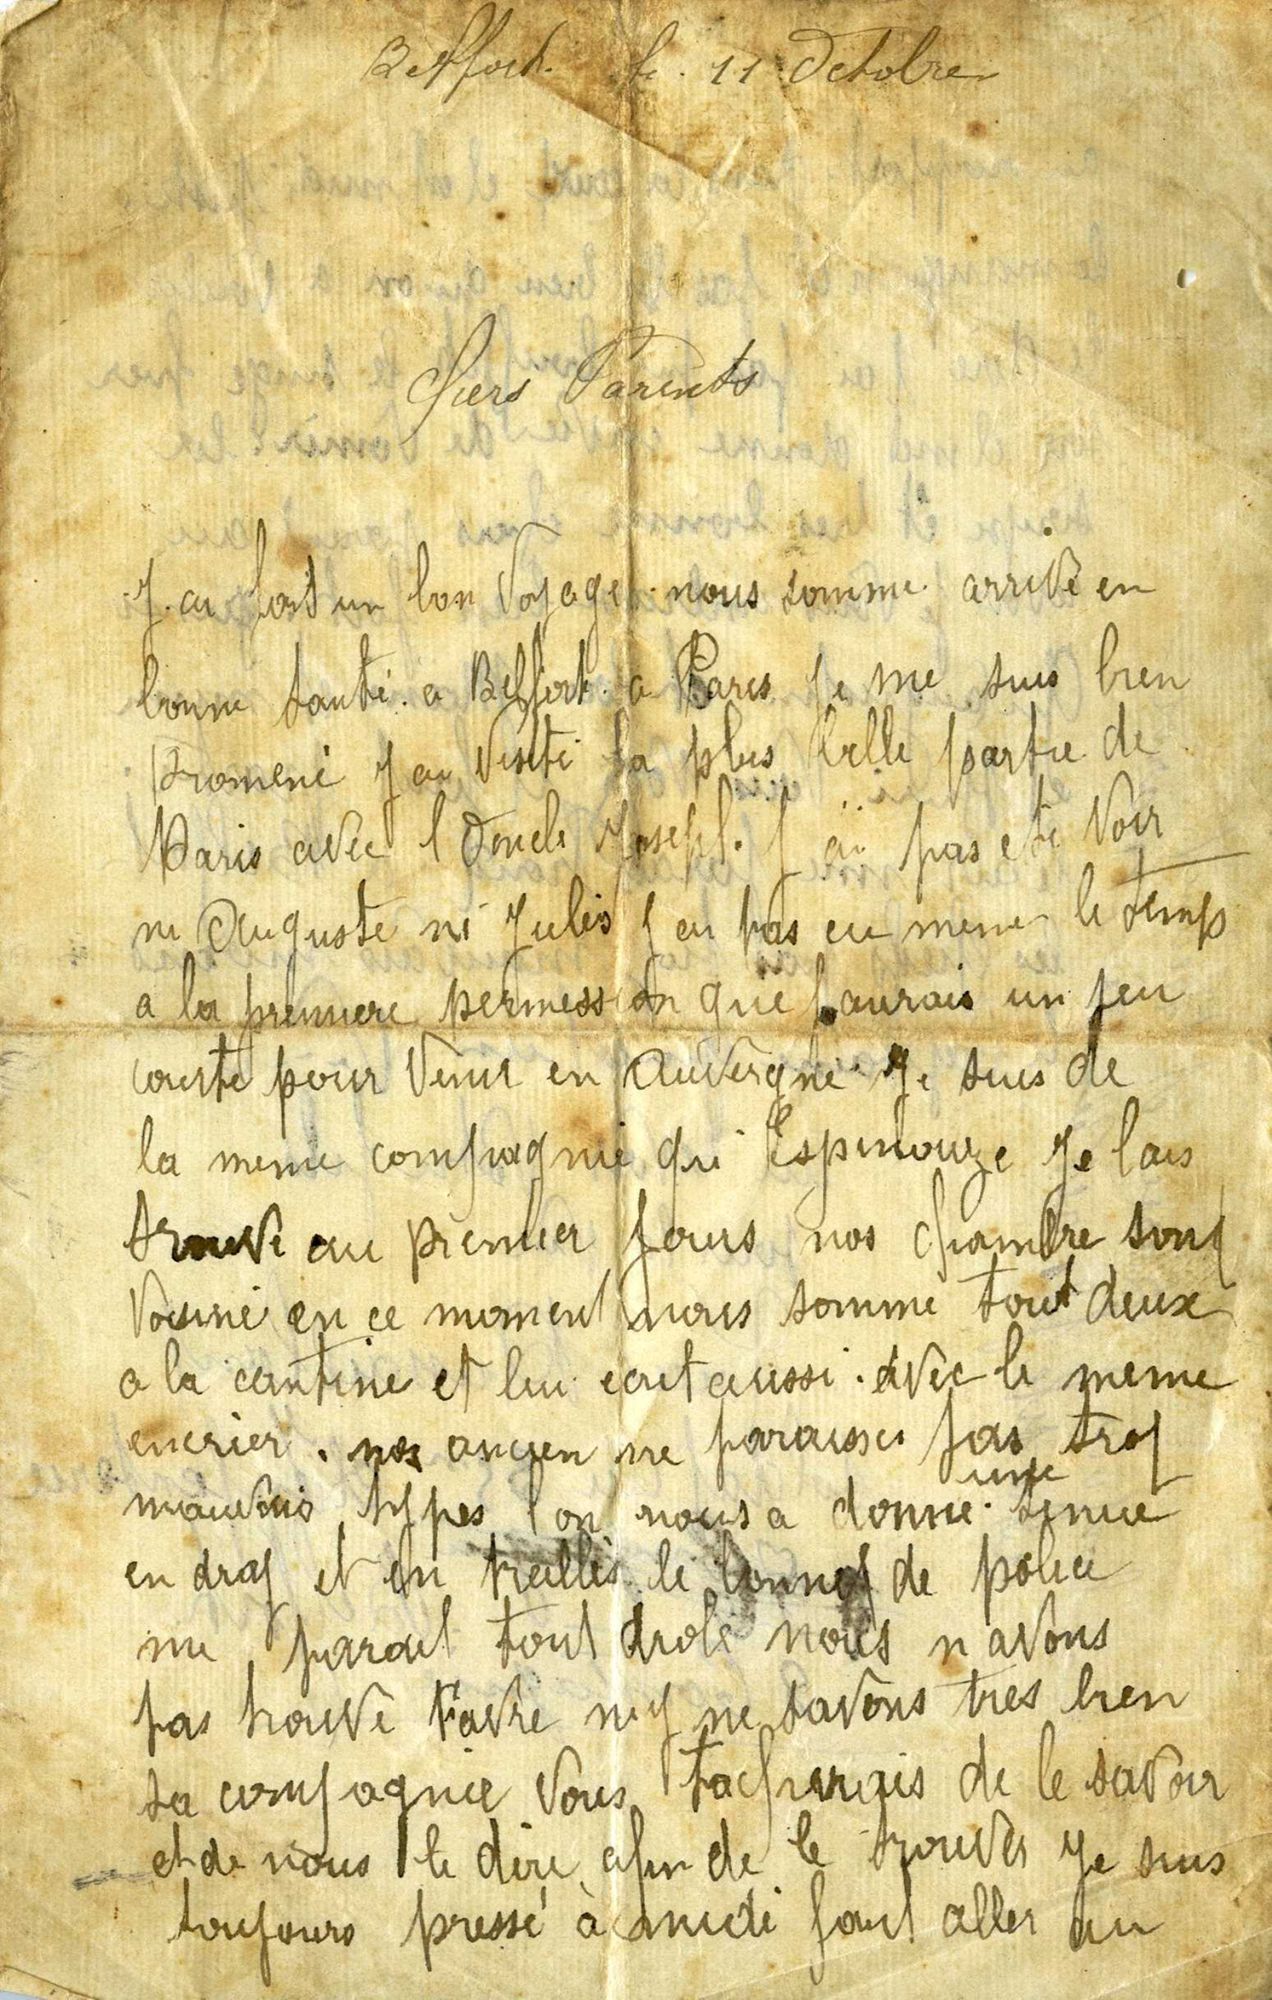 Belfort. le. 11 Octobre
Chers Parents
J. ai fait un bon voyage. nous somme arrivé en
bonne santé. a Belfort. a Paris je me suis bien
Promené J ai visité la plus belle partie de
Paris avec l Oncle Joseph. J ai pas eté voir
ni Auguste ni Jules J ai pas eu meme le temp
a la premiere permession que jaurais un peu
courte pour venir en Auvergne Je suis de
la meme compagnie qui Espinouze Je lais
trouvé au premier jours nos chambre sont
voisine en ce moment nous somme tout deux
a la cantine et lui ecrit aussi. avec le meme
encrier. nos ancien ne paraisse pas trop
mauvais types l on nous a donné. une tenue
en drap et en treillis. le bonnet de police
me parait tout drole nous n avons
pas trouvé Favre ne savons tres bien
sa compagnie vous tacherais de le savoir
et de nous le dire afin de le trouver Je suis
toujours pressé à midi faut aller au